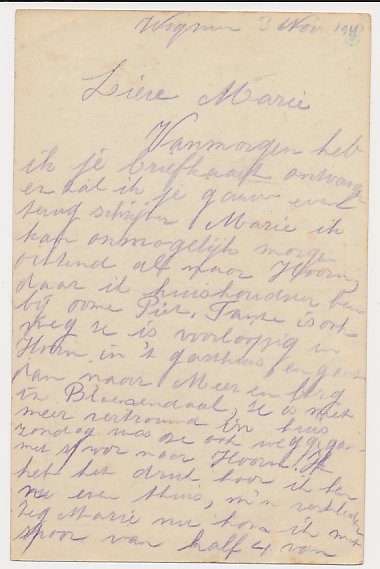 Wognum 3 Nov. 191
Lieve Marie
Vanmorgen heb
ik je briefkaart ontvangen
en zal ik je gauw even
terug schrijven Marie ik
kan onmogelijk morgen
ochtend al naar Hoorn,
daar ik huishoudster ben
bij oome Piet, Tante is ook
weg ze is voorloopig in
Hoorn in 't gasthuis en gaat
dan naar Meer en berg
in Bloemendaal, ze is niet
meer vertrouwd in huis
zondag was ze ook weg gegaan
met spoor naar Hoorn. Ik
heb het druk hoor ik ben
nu even thuis, m'n
zeg Marie nu kom ik met
spoor van half 4 van